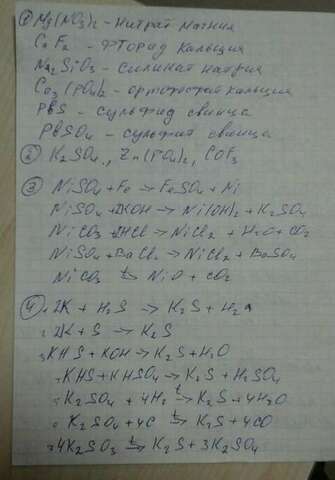 ① Mg(NO3)2 - нитрат магния
CaF2 - фторид кальция
Na2SiO3 - силикат натрия
Ca3(PO4)2 - ортофосфат кальция
PbS - сульфид свинца
PbSO4 - сульфит свинца
② K2SO4, Zn(PO4)2, CoF3
③ NiSO4 + Fe → FeSO4 + Ni
NiSO4 + 2KOH → Ni(OH)2 + K2SO4
NiCO3 + 2HCl → NiCl2 + H2O + CO2
NiSO4 + BaCl2 → NiCl2 + BaSO4
NiCO3 t→ NiO + CO2
④ 1. 2K + H2S → K2S + H2
2. 2K + S → K2S
3. KHS + KOH → K2S + H2O
KHS + KHSO4 → K2S + H2SO4
K2SO4 + 4H2 t→ K2S + 4H2O
K2SO4 + 4C t→ K2S + 4CO
4K2SO3 t→ K2S + 3K2SO4